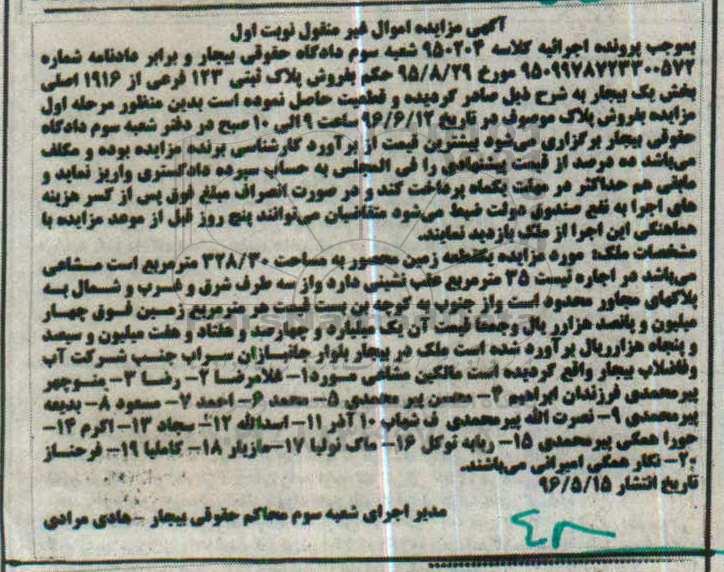 آگهی مزایده اموال غیر منقول نوبت اول
بموجب پرونده اجرائیه کلاسه ۹۵۰۲۰۴ شعبه سوم دادگاه حقوقی بیجار و برابر دادنامه شماره
۹۵۰۹۹۷۸۷۲۳۳۰۰۵۷۲ مورخ ۹۵/۸/۲۹ حکم بفروش پلاک ثبتی ۱۲۳ فرعی از ۱۹۱۶ اصلی
بخش یک بیجار به شرح ذیل صادر گردیده و قطعیت حاصل نموده است بدین منظور مرحله اول
مزایده بفروش پلاک موصوف در تاریخ ۹۶/۶/۱۲ ساعت ۹ الی ۱۰ صبح در دفتر شعبه سوم دادگاه
حقوقی بیجار برگزاری می‌شود بیشترین قیمت از برآورد کارشناسی برنده مزایده بوده و مکلف
می‌باشد ده درصد از قیمت پیشنهادی را فی المجلس به حساب سپرده دادگستری واریز نماید و
مابقی هم حداکثر در مهلت یکماه پرداخت کند و در صورت انصراف مبلغ فوق پس از کسر هزینه
های اجرا به نفع صندوق دولت ضبط می‌شود متقاضیان می‌توانند پنج روز قبل از موعد مزایده با
هماهنگی این اجرا از ملک بازدید نمایند.
مشخصات ملک: مورد مزایده یکقطعه زمین محصور به مساحت ۳۲۸/۳۰ مترمربع است مشاعی
می‌باشد در اجاره نیست ۳۵ مترمربع عقب نشینی دارد واز سه طرف شرق و غرب و شمال به
پلاکهای مجاور محدود است واز جنوب به کوچه بن بست قیمت هر مترمربع زمین فوق چهار
میلیون و پانصد هزارریال وجمعا قیمت آن یک میلیارد و چهارصد و هفتاد و هفت میلیون و سیصد
و پنجاه هزارریال برآورد شده است ملک در بیجار بلوار جانبازان سراب جنب شرکت آب
وفاضلاب بیجار واقع گردیده است مالکین مشاعی مورد۱- غلامرضا ۲- رضا ۳- منوچهر
پیرمحمدی فرزندان ابراهیم ۴- محسن پیر محمدی ۵- محمد ۶- احمد ۷- مسعود ۸- بدیعه
پیرمحمدی ۹- نصرت الله پیرمحمدی ف شهاب ۱۰ آذر ۱۱- اسدالله ۱۲- سجاد ۱۳- اکرم ۱۴-
حورا همکی پیرمحمدی ۱۵- ربابه توکل ۱۶- ماک نولیا ۱۷- مازیار ۱۸- کاملیا ۱۹- فرحناز
۲۰- نگار همکی امیرانی می‌باشند.
تاریخ انتشار ۹۶/۵/۱۵
مدیر اجرای شعبه سوم محاکم حقوقی بیجار - هادی مرادی